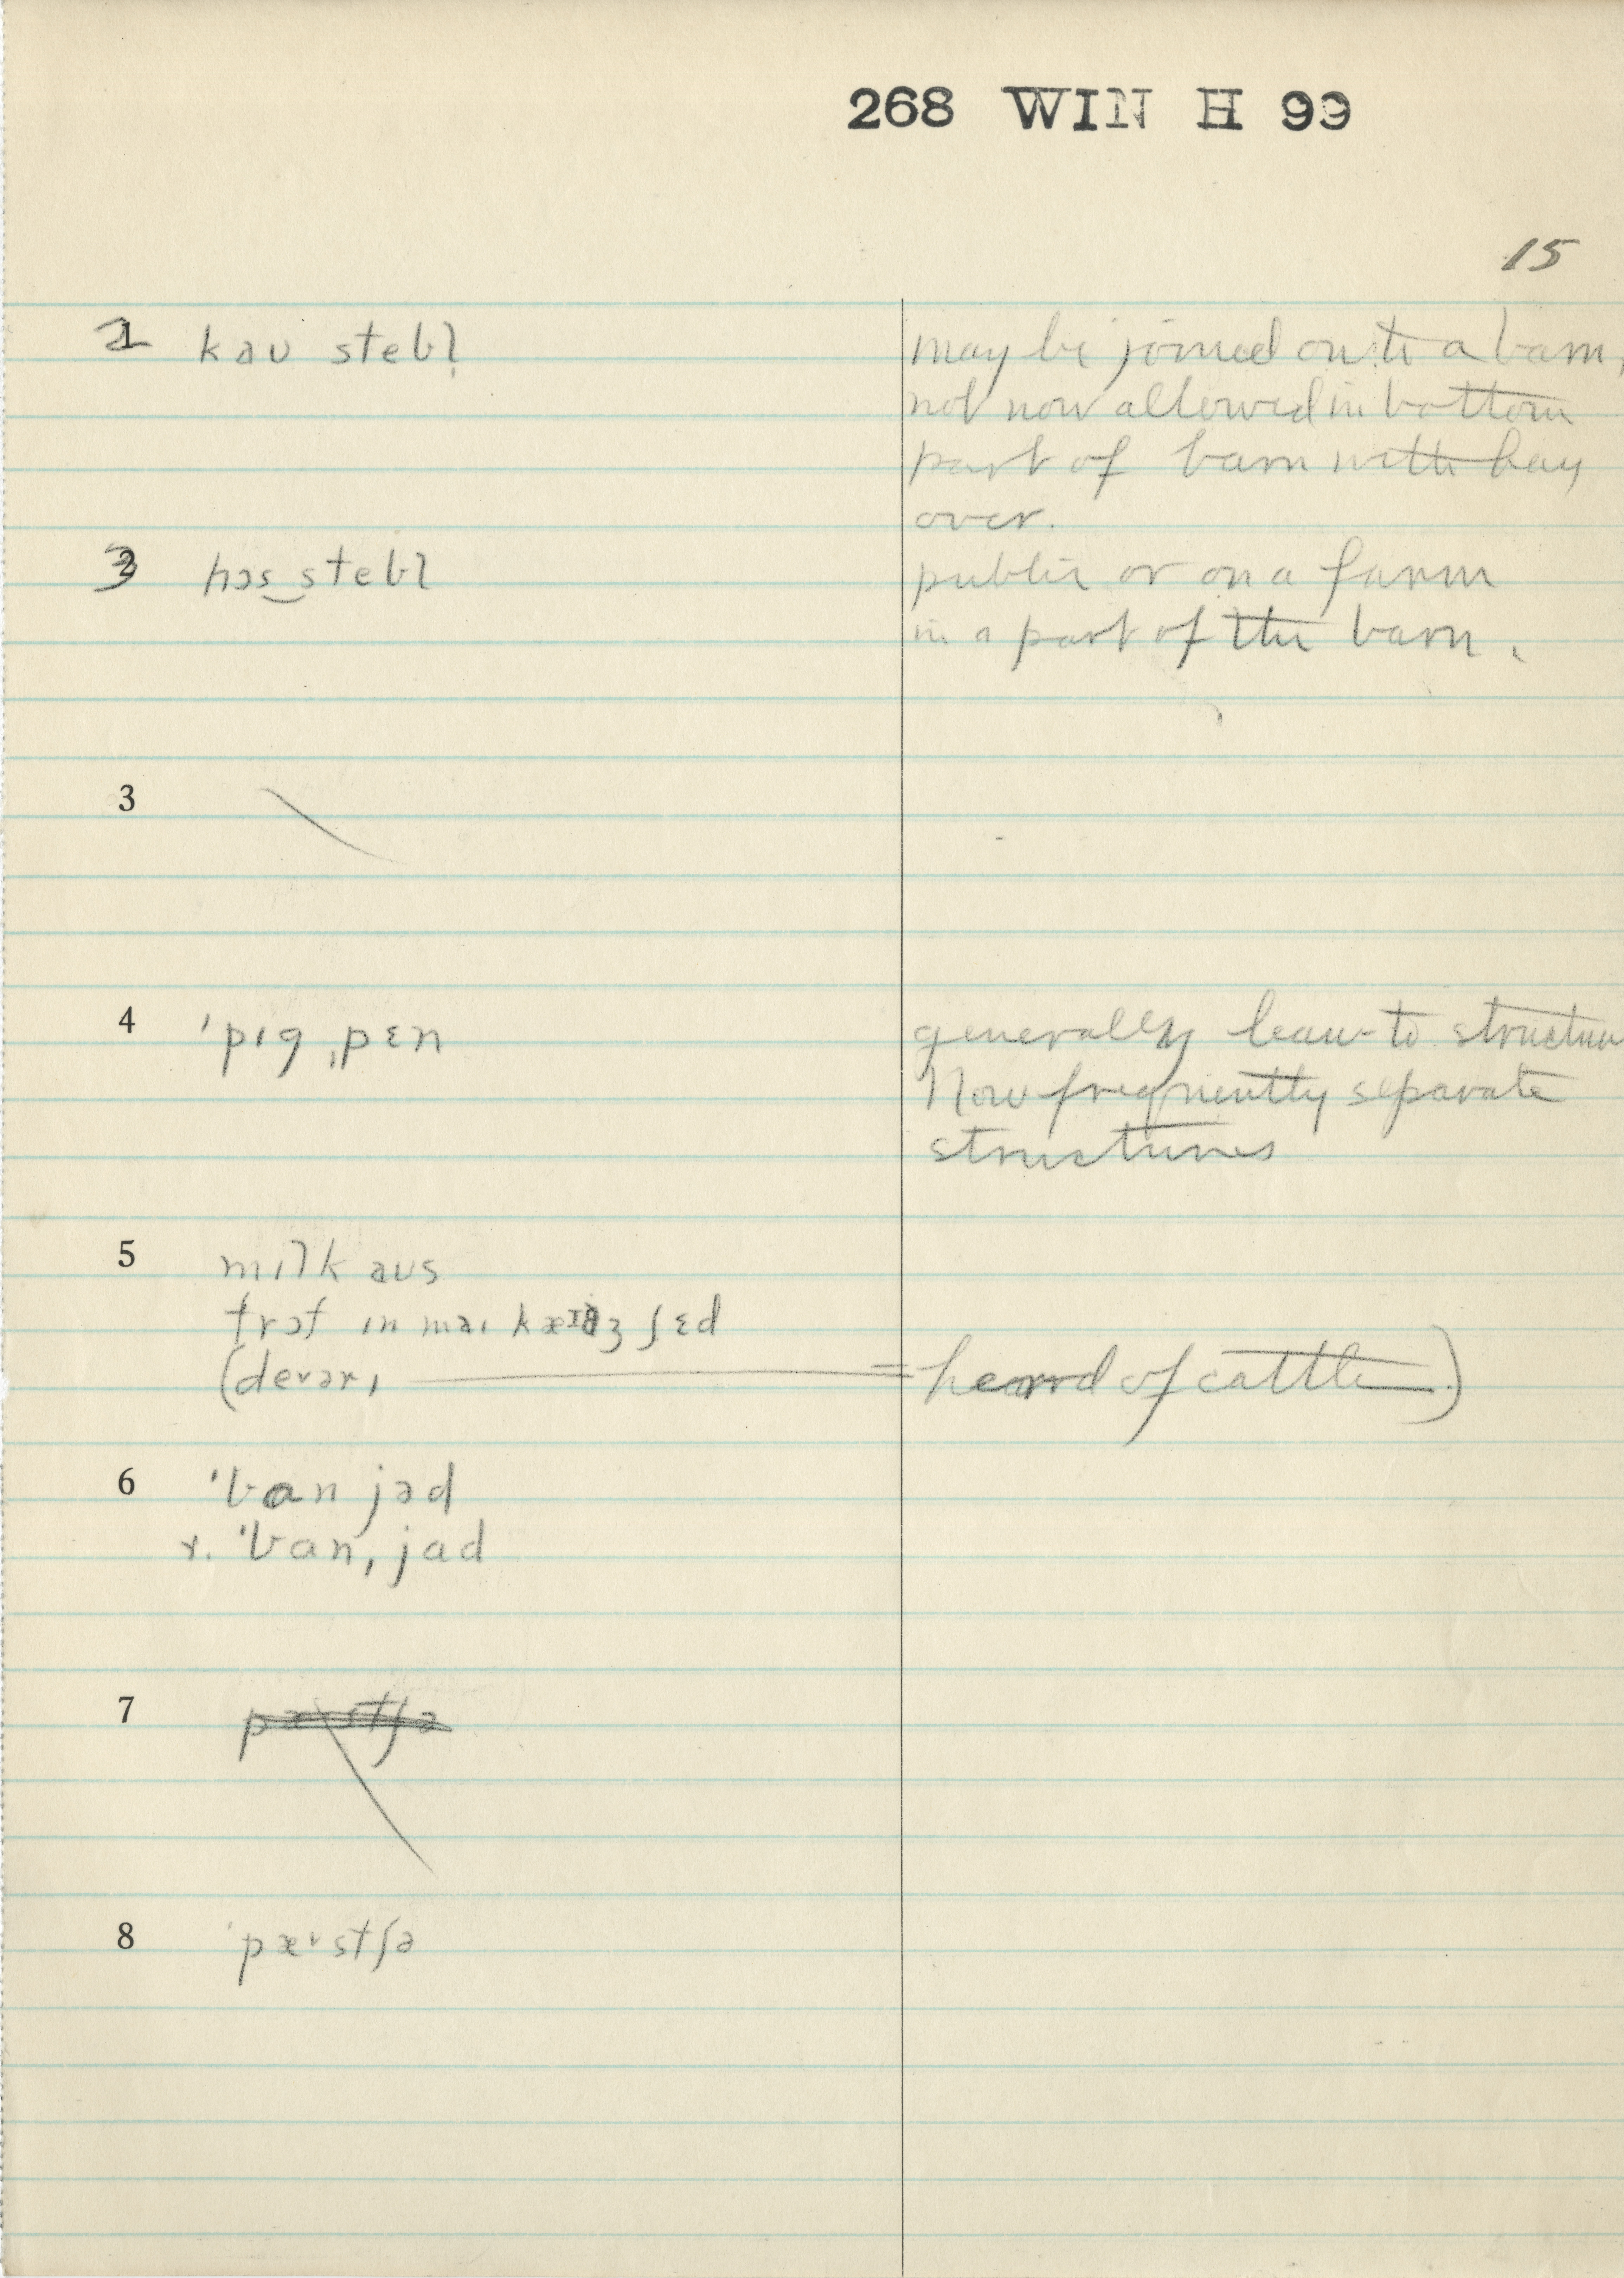 268 WIN H 99
15
2 kaʊ stebl̩
may be joined onto a barn,
not now allowed in bottom
part of barn with hay
over.
3 hɔs‿stebl
public or on a farm
in a part of the barn.
3
4 ˈpɪg ˌpɛn
generally lean-to structure
Now frequently separate
structures
5 mɪlk aʊs
trɔf ɪn maɪ ʃɛd
(deərɪ = heard of cattle)
6 ˈban jəd
r. ˈban, jad
7 pæstʃə
8 ˈpæˑstʃə